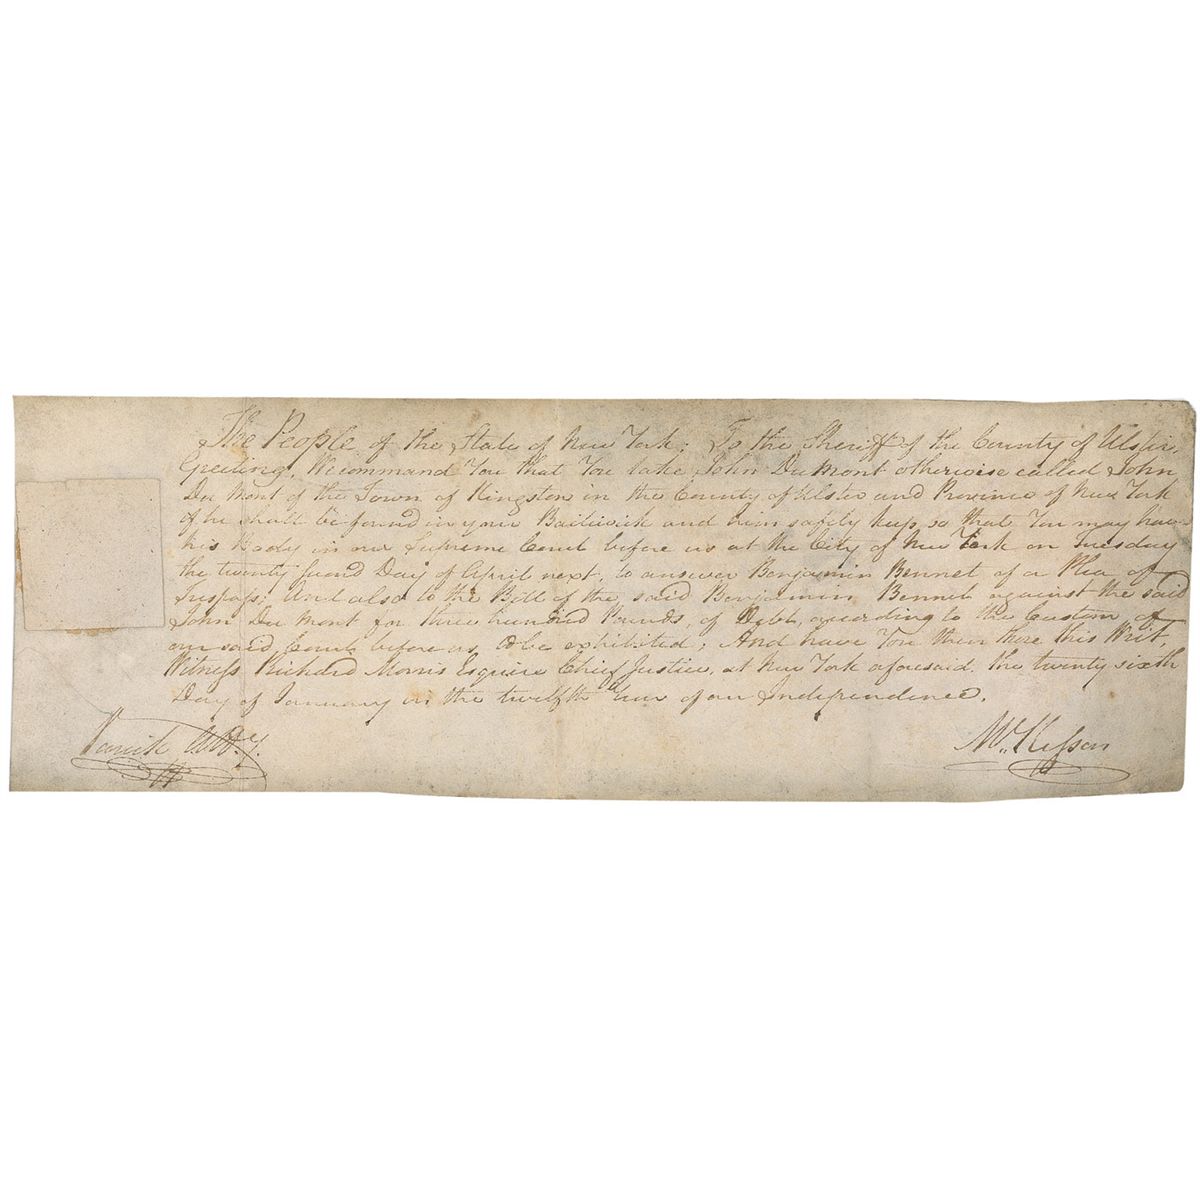 The People of the State of New York; To the Sheriff of the County of Ulster,
Greeting, We command You that You take John Du Mont otherwise called John
Du Mont of the Town of Kingston in the County of Ulster and Province of New York
if he shall be found in your Bailiwick and him safely keep, so that You may have
his Body in our Supreme Court before us at the City of New York on Tuesday
the twenty second Day of April next, to answer Benjamin Bennet of a Plea of
Trespass; And also to the Bill of the said Benjamin Bennet against the said
John Du Mont for three hundred Pounds, of Debt, according to the Custom of
our said Court before us to be exhibited; And have You then there this Writ,
Witness Richard Morris Esquire Chief Justice, at New York aforesaid the twenty sixth
Day of January in the twelfth Year of our Independence.
Att.y.
McKesson